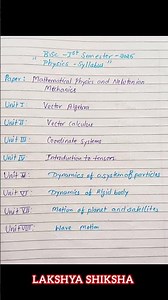 BSc - Ist Semester - 2025
" Physics - Syllabus "
Paper: Mathematical Physics and Newtonian
Mechanics
Unit I Vector Algebra
Unit II Vector Calculus
Unit III Coordinate Systems
Unit IV Introduction to tensors
Unit V Dynamics of a system of particles
Unit VI Dynamics of Rigid body
Unit VII Motion of planet and satellites
Unit VIII Wave Motion
LAKSHYA SHIKSHA